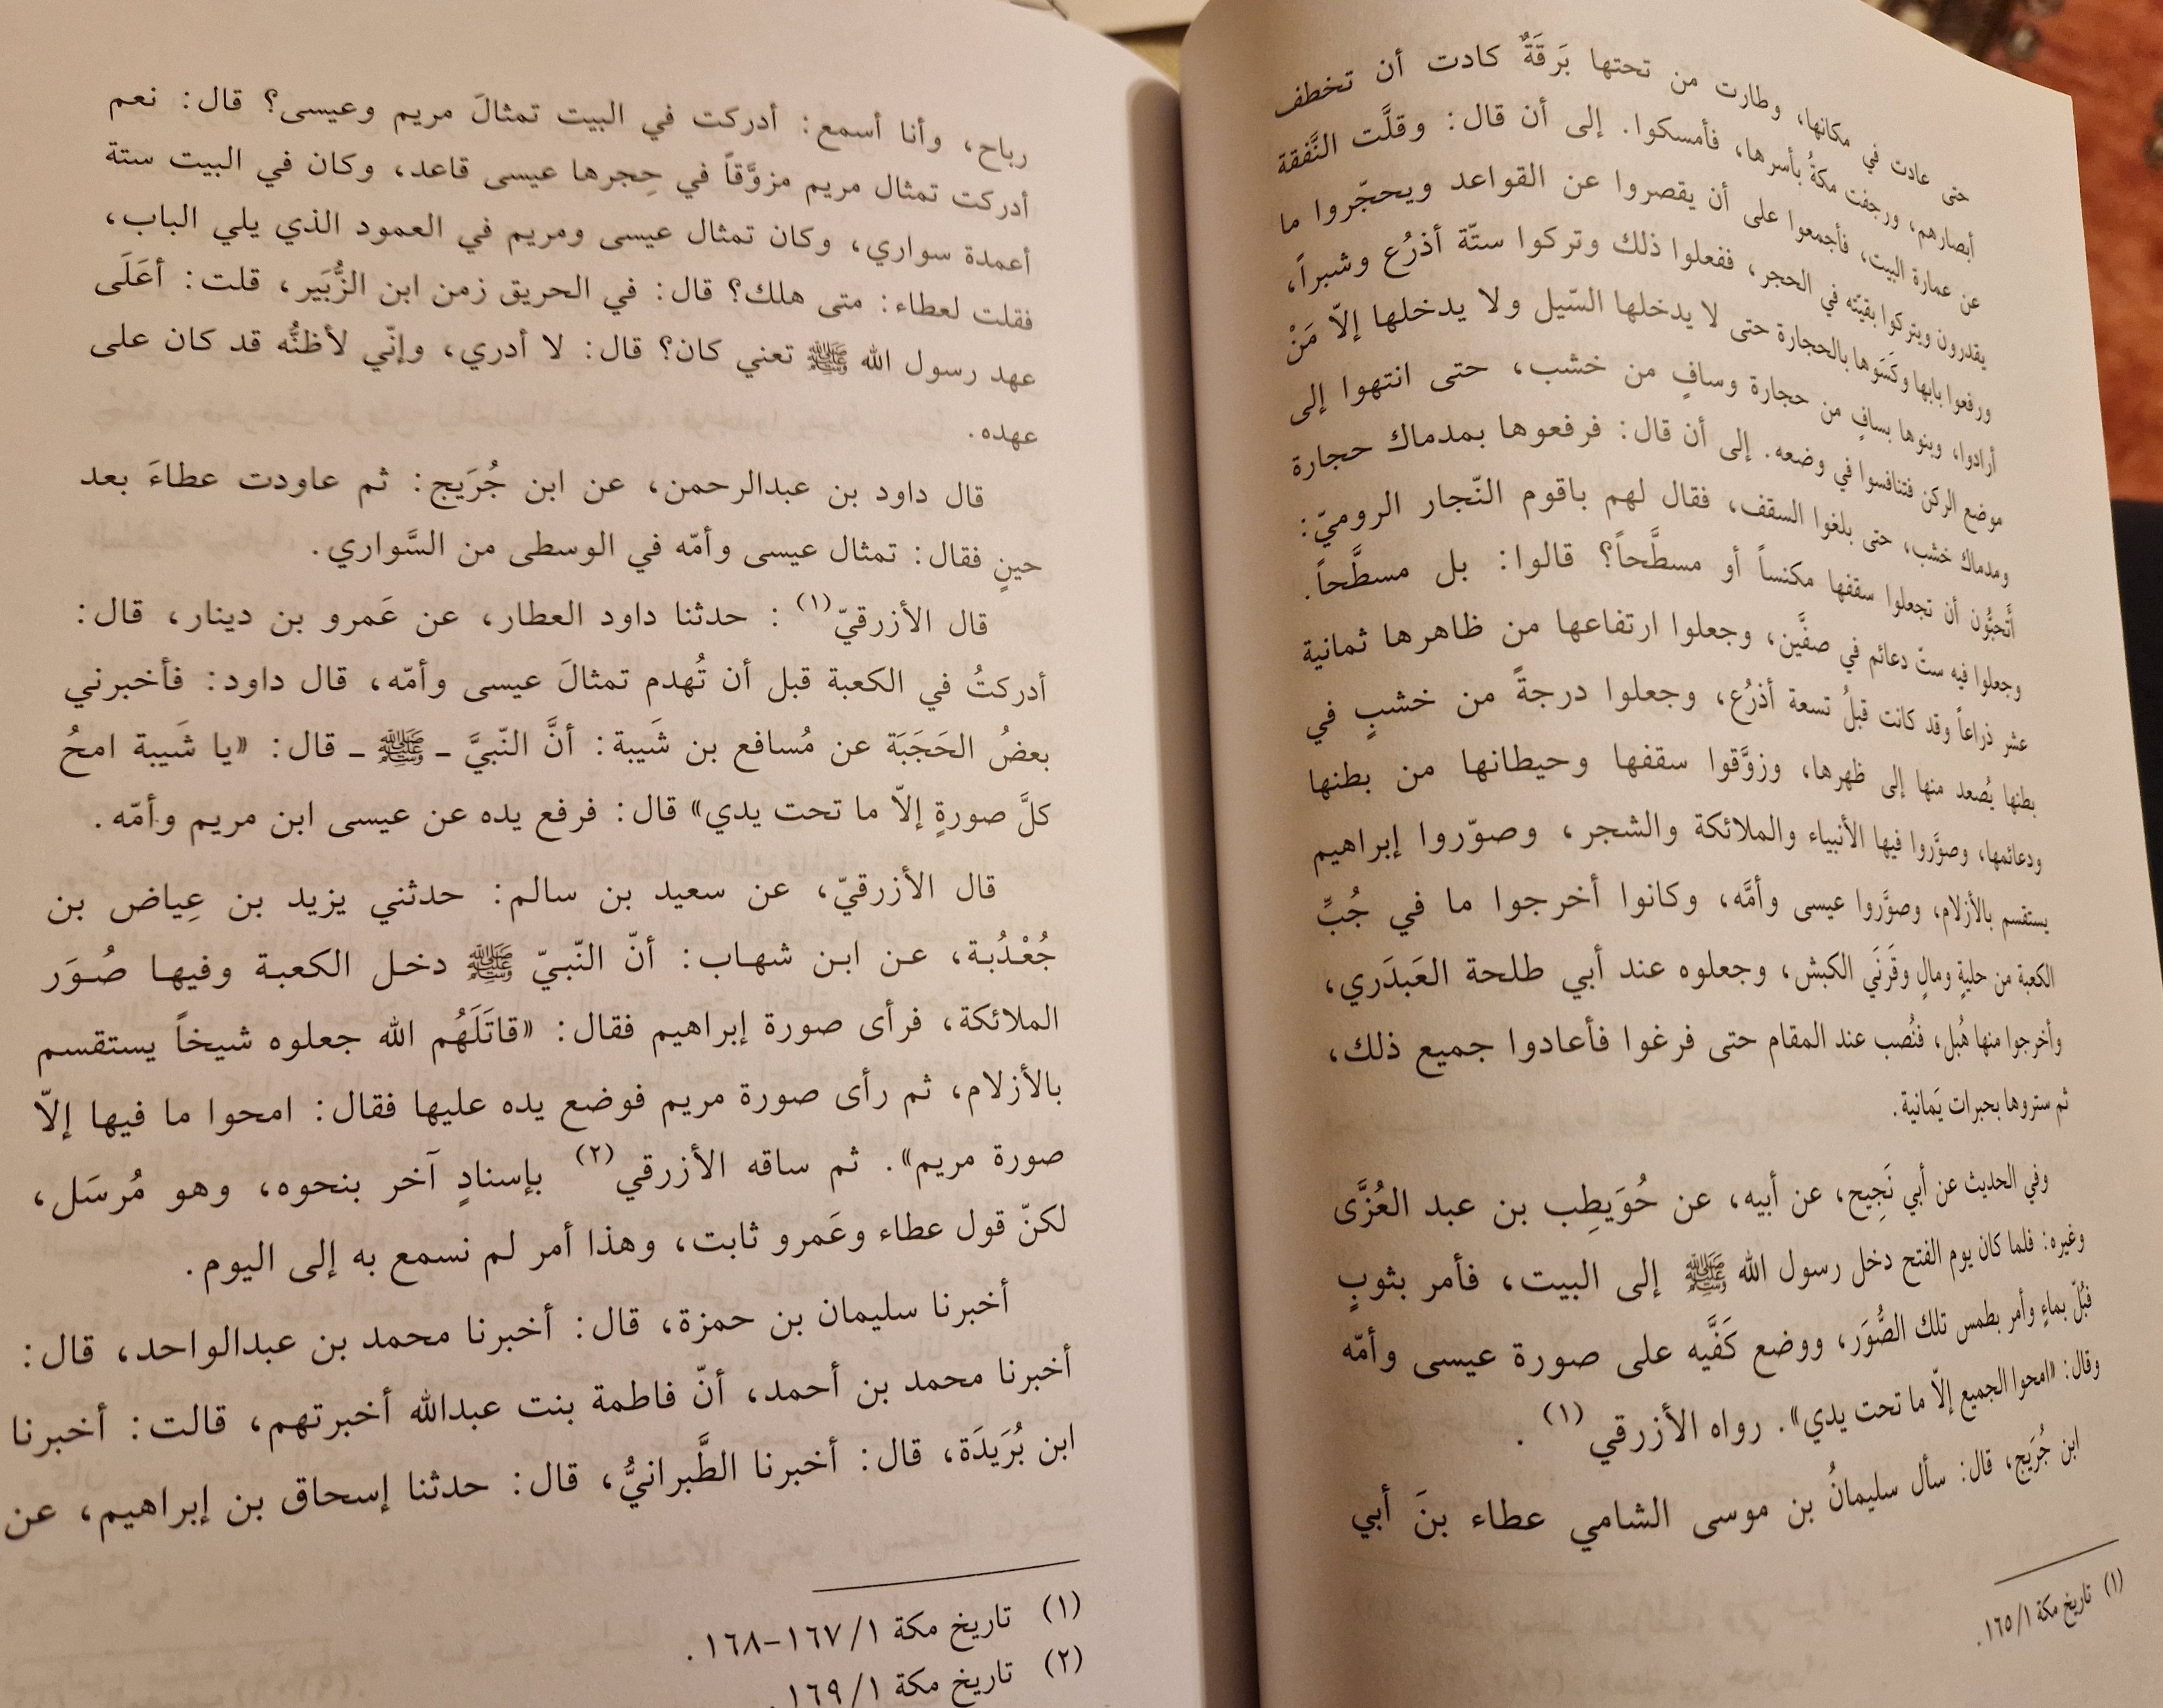 حتى عادت في مكانها، وطارت من تحتها بَرقَةٌ كادت أن تخطف
أبصارهم، ورجفت مكةُ بأسرها، فأمسكوا. إلى أن قال: وقلَّت النَّفقة
عن عمارة البيت، فأجمعوا على أن يقصروا عن القواعد ويحجّروا ما
يقدرون ويتركوا بقيتّه في الحجر، ففعلوا ذلك وتركوا ستّة أذرُع وشبراً،
ورفعوا بابها وكَسَوها بالحجارة حتى لا يدخلها السّيل ولا يدخلها إلاّ مَنْ
أرادوا، وبنوها بسافٍ من حجارة وسافٍ من خشب، حتى انتهوا إلى
موضع الركن فتنافسوا في وضعه. إلى أن قال: فرفعوها بمدماك حجارة
ومدماك خشب، حتى بلغوا السقف، فقال لهم باقوم النّجار الروميّ:
أَتُحبُّون أن تجعلوا سقفها مكنساً أو مسطَّحاً؟ قالوا: بل مسطَّحاً.
وجعلوا فيه ستّ دعائم في صفَّين، وجعلوا ارتفاعها من ظاهرها ثمانية
عشر ذراعاً وقد كانت قبلُ تسعة أذرُع، وجعلوا درجةً من خشبٍ في
بطنها يُصعد منها إلى ظهرها، وزوَّقوا سقفها وحيطانها من بطنها
ودعائمها، وصوَّروا فيها الأنبياء والملائكة والشجر، وصوّروا إبراهيم
يستقسم بالأزلام، وصوَّروا عيسى وأمَّه، وكانوا أخرجوا ما في جُبِّ
الكعبة من حليةٍ ومالٍ وقَرنَي الكبش، وجعلوه عند أبي طلحة العَبدَري،
وأخرجوا منها هُبل، فنُصب عند المقام حتى فرغوا فأعادوا جميع ذلك،
ثم ستروها بحبرات يَمانية.
وفي الحديث عن أبي نَجِيح، عن أبيه، عن حُوَيطِب بن عبد العُزَّى
وغيره: فلما كان يوم الفتح دخل رسول الله ﷺ إلى البيت، فأمر بثوبٍ
فبُلّ بماءٍ وأمر بطمس تلك الصُّوَر، ووضع كَفَّيه على صورة عيسى وأمّه
وقال: «امحوا الجميع إلاّ ما تحت يدي». رواه الأزرقي(١).
ابن جُرَيج، قال: سأل سليمانُ بن موسى الشامي عطاء بنَ أبي
(١) تاريخ مكة ١/ ١٦٥.
رباح، وأنا أسمع: أدركت في البيت تمثالَ مريم وعيسى؟ قال: نعم
أدركت تمثال مريم مزوَّقاً في حِجرها عيسى قاعد، وكان في البيت ستة
أعمدة سواري، وكان تمثال عيسى ومريم في العمود الذي يلي الباب،
فقلت لعطاء: متى هلك؟ قال: في الحريق زمن ابن الزُّبَير، قلت: أعَلَى
عهد رسول الله ﷺ تعني كان؟ قال: لا أدري، وإنّي لأظنُّه قد كان على
عهده.
قال داود بن عبدالرحمن، عن ابن جُرَيج: ثم عاودت عطاءَ بعد
حينٍ فقال: تمثال عيسى وأمّه في الوسطى من السَّواري.
قال الأزرقيّ(١): حدثنا داود العطار، عن عَمرو بن دينار، قال:
أدركتُ في الكعبة قبل أن تُهدم تمثالَ عيسى وأمّه، قال داود: فأخبرني
بعضُ الحَجَبَة عن مُسافع بن شَيبة: أنَّ النّبيَّ ـ ﷺ ـ قال: «يا شَيبة امحُ
كلَّ صورةٍ إلاّ ما تحت يدي» قال: فرفع يده عن عيسى ابن مريم وأمّه.
قال الأزرقيّ، عن سعيد بن سالم: حدثني يزيد بن عِياض بن
جُعْدُبة، عن ابن شهاب: أنّ النّبيّ ﷺ دخل الكعبة وفيها صُوَر
الملائكة، فرأى صورة إبراهيم فقال: «قاتَلَهُم الله جعلوه شيخاً يستقسم
بالأزلام، ثم رأى صورة مريم فوضع يده عليها فقال: امحوا ما فيها إلاّ
صورة مريم». ثم ساقه الأزرقي(٢) بإسنادٍ آخر بنحوه، وهو مُرسَل،
لكنّ قول عطاء وعَمرو ثابت، وهذا أمر لم نسمع به إلى اليوم.
أخبرنا سليمان بن حمزة، قال: أخبرنا محمد بن عبدالواحد، قال:
أخبرنا محمد بن أحمد، أنّ فاطمة بنت عبدالله أخبرتهم، قالت: أخبرنا
ابن بُرَيدَة، قال: أخبرنا الطَّبرانيُّ، قال: حدثنا إسحاق بن إبراهيم، عن
(١) تاريخ مكة ١/ ١٦٧-١٦٨.
(٢) تاريخ مكة ١/ ١٦٩.